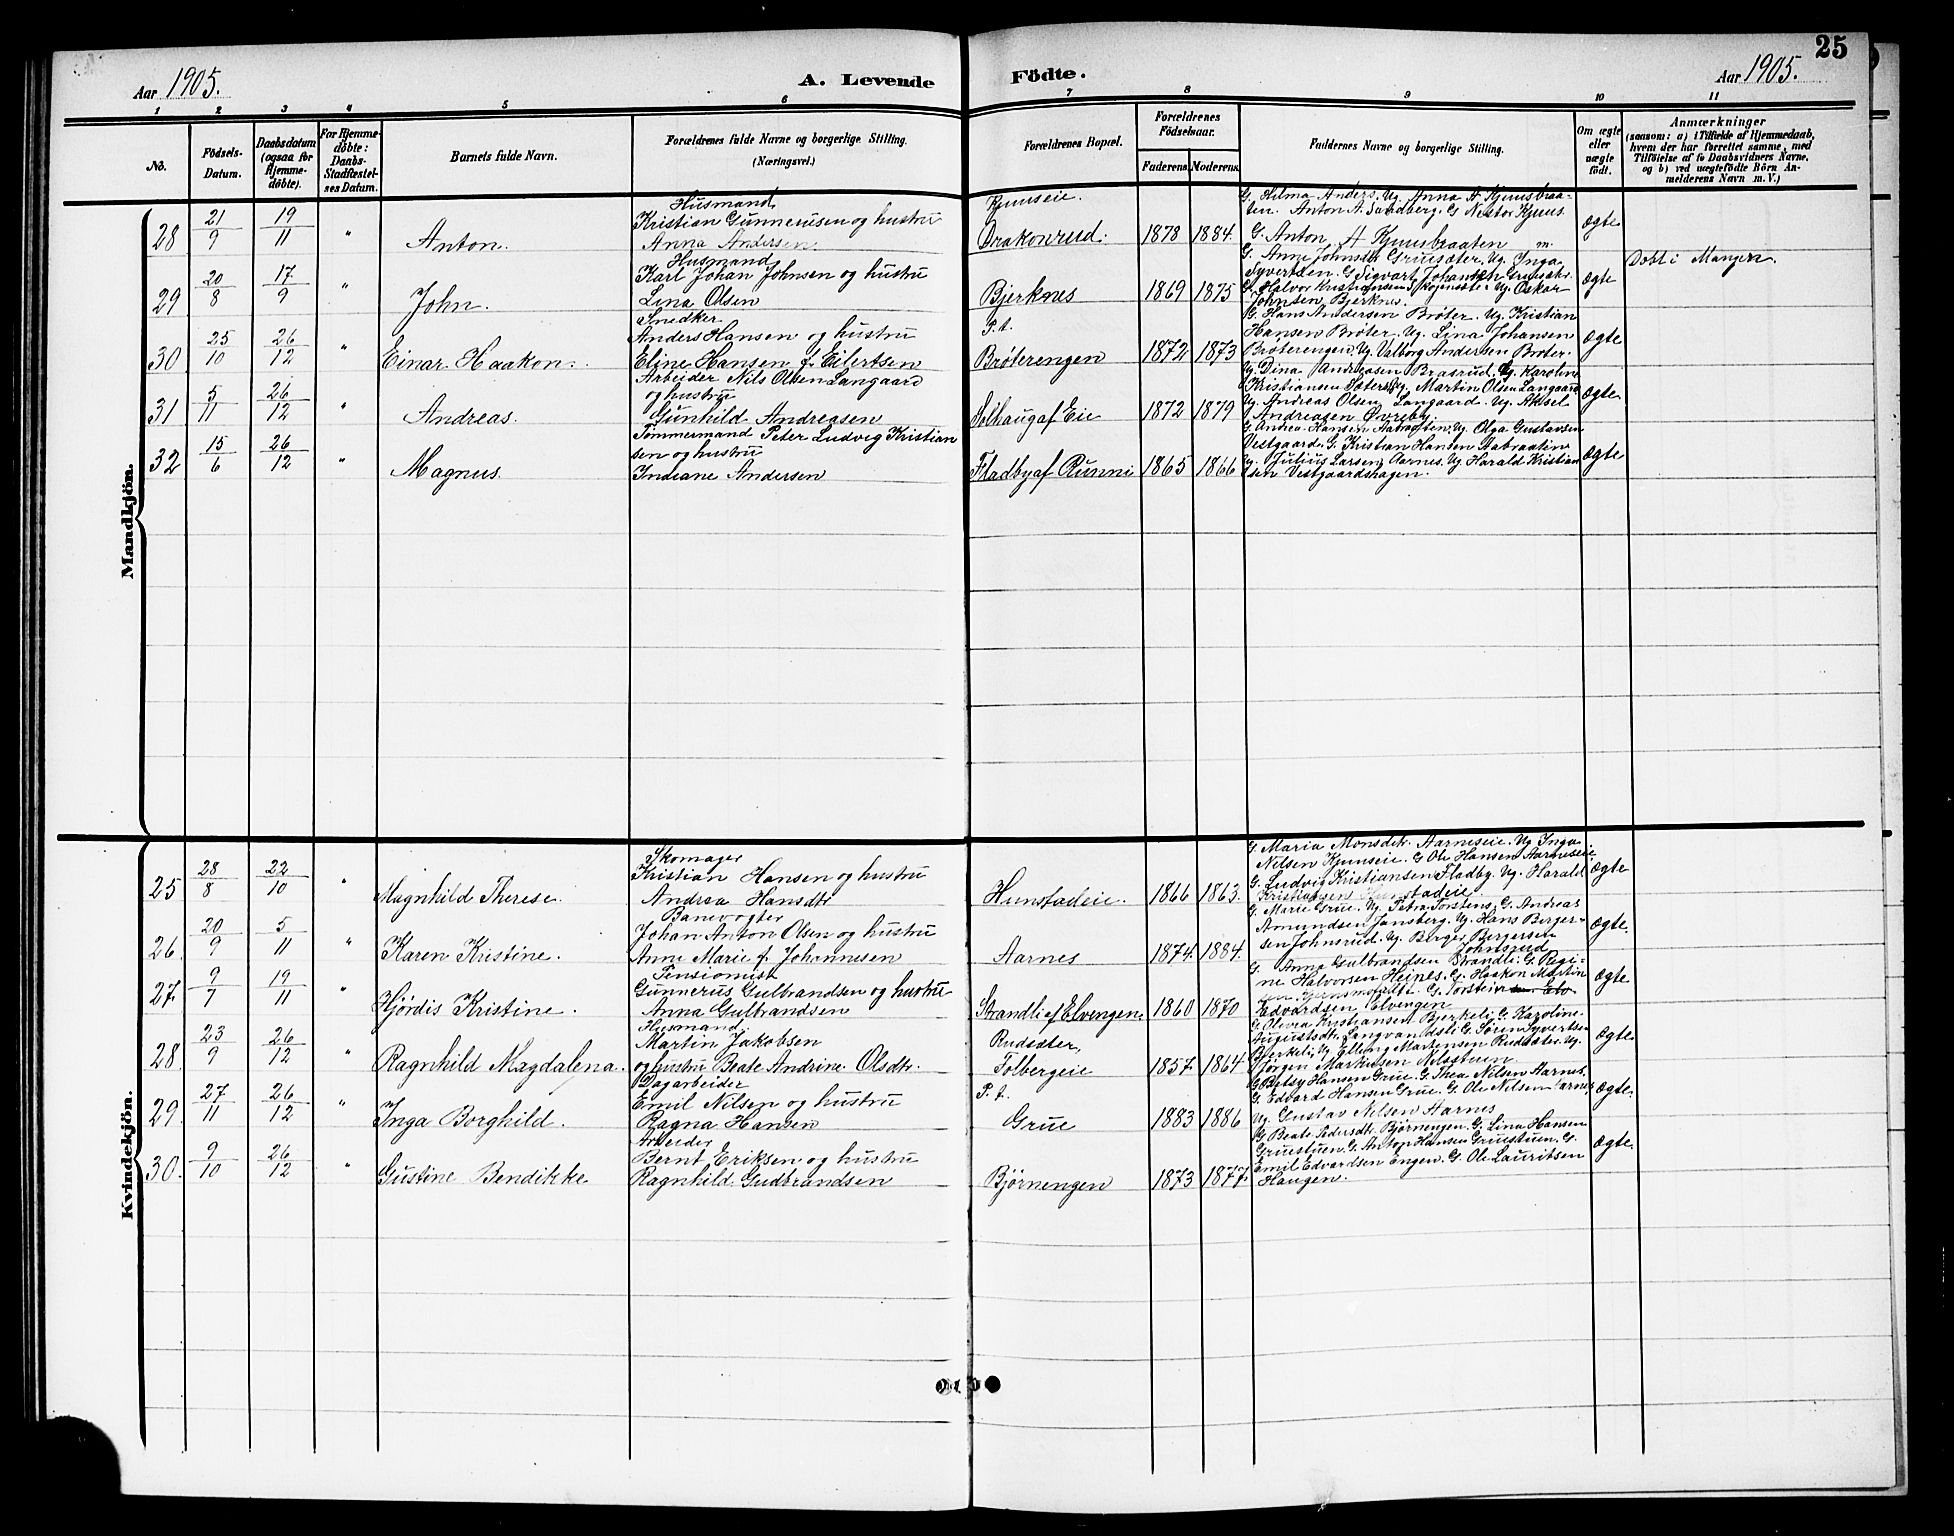 25
Aar 1905.
A. Levende
Födte.
Aar 1905.
1 2 3 4 5 6 7 8 9 10 11
No.
Födsels-
Datum.
Daabsdatum
(ogsaa for
Hjemme-
döbte).
For Hjemme-
döbte:
Daabs-
Stadfæstel-
ses Datum.
Barnets fulde Navn.
Forældrenes fulde Navne og borgerlige Stilling.
(Næringsvei.)
Forældrenes Bopæl.
Forældrenes
Födselsaar.
Faderens.
Moderens.
Faddernes Navne og borgerlige Stilling.
Om ægte
eller
uægte
födt.
Anmærkninger
(saasom: a) i Tilfælde af Hjemmedaab,
hvem der har forrettet samme, med
Tilföielse af to Daabsvidners Navne,
og b) ved uægtefödte Börn An-
melderens Navn m. V.)
Mandkjön.
28
21/9
19/11
"
Anton.
Husmand
Kristian Gunneriusen og hustru
Anna Andersen
Kjunseie.
Drakonrud.
1878
1884.
G. Hilma Anders. Ug. Anna A Kjuusbraa-
ten. Anton A. Sandberg. G Nestor Kjuus
G. Anton A Kjuusbraaten m.
ægte
29
20/8
17/9
"
John.
Husmand
Karl Johan Johnsen og hustru
Lina Olsen
Bjerknes
1869
1875
G. Anne Johnsdtr Gruesæter. Ug. Inga
Syvertsen. G Sigvart Johansen Gruesætr.
G. Halvor Kristiansen. Ug. Oskar
Johnsen Bjerknes.
ægte
Døbt i Mangen.
30
25/10
26/12
"
Einar Haakon.
Snedker
Anders Hansen og hustru
Eline Hansen f. Eilertsen
P.t.
Brøterengen
1872
1873
G. Hans Andersen Brøter. Ug. Kristian
Hansen Brøter. Ug. Lina Johansen
Brøterengen. Ug. Valborg Andersen Brøter.
ægte
31
5/11
26/12
Andreas.
Arbeider Nils Olsen Langaard
og hustru
Gunhild Andreasen
Solhaug af Eie
1872
1879
Ug. Dina Andreasen Brasrud. Ug. Karoline
Kristiansen Sæter. Ug. Martin Olsen Langaard
Ug. Andreas Olsen Langaard. Ug. Aksel
Andreasen Øvreby.
ægte
32
15/6
26/12
"
Magnus.
Tømmermand Peter Ludvig Kristian
sen og hustru
Indiane Andersen
Fladby af Runni
1865
1866
G. Andrea Hansen Aabraaten. Ug. Olga Gustavsen
Vestgaard. G. Kristian Hansen Aabraaten
Ug. Julius Larsen, Aarnes. Ug. Harald Kristian
sen Vestgaardshagen.
ægte
Kvindekjön.
25
28/8
22/10
"
Magnhild Therese.
Skomager
Kristian Hansen og hustru
Andrea Hansdtr
Hunstadeie.
1866
1863.
G. Maria Monsdtr. Aarneseie. Ug Inga
Nilsen Kjuuseie. G Ole Hansen Aarneseie
G. Ludvig Kristiansen Fladby. Ug. Harald
Kristiansen Hunstadeie.
ægte
26
20/9
5/11
"
Karen Kristine.
Banevogter
Johan Anton Olsen og hustru
Anne Marie f. Johannesen
Aarnes
1874.
1884.
G. Marie Grue. Ug. Petra Torstens. G. Andreas
Amundsen Jansberg. Ug. Hans Berger-
sen Johnsrud. Ug. Berger Bergersen
Johnsrud
ægte.
27.
9/7
19/11
"
Hjørdis Kristine.
Pensionist
Gunnerus Gulbrandsen og hustru
Anna Gulbrandsen
Strandli af Elvengen.
1860
1870
G. Anna Gulbrandsen Strandli. G. Regi-
ne Halvorsen Heines. G. Haakon Martin
G. Torstein
Edvardsen Elvengen
ægte
28
23/9
26/12
"
Ragnhild Magdalena.
Husmand
Martin Jakobsen
og hustru Beate Andrine Olsdtr.
Rudsæter,
Tolbergeie
1857.
1864
G. Olivia Kristiansen Bjerkeli. G. Karoline
Augustsdtr. G. Søren Syvertsen
Bjerkeli. Ug. Elling Martinsen Rudsæter. Ug.
Jørgen Markusen Nilsstuen
ægte.
29
27/11
26/12
"
Inga Borghild.
Dagarbeider
Emil Nilsen og hustru
Ragna Hansen
P.t.
Grue
1883
1886
G. Betsy Hansen Grue. G. Thea Nilsen Aarnes.
G. Edvard Hansen Grue. G. Ole Nilsen Aarnes,
Ug. Gustav Nilsen Aarnes
ægte.
30.
9/10
26/12
"
Gustine Bendikke
Arbeider
Bernt Eriksen og hustru
Ragnhild Gudbrandsen
Bjørnengen
1873
1877.
G. Beate Pedersdtr. Bjørnengen. G. Lina Hansen
Gruestuen. G. Anton Hansen Gruestuen. G.
Emil Edvardsen Engen. G. Ole Lauritsen
Haugen.
ægte.